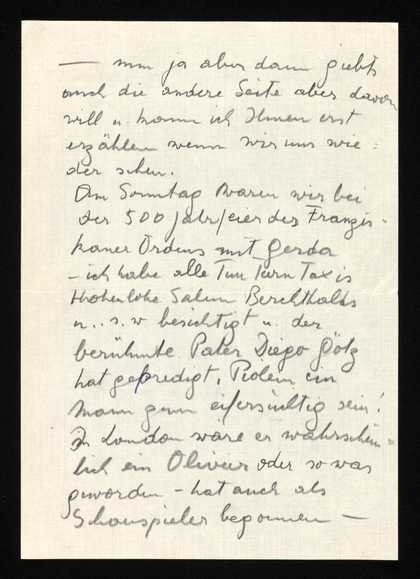 — nun ja aber dann giebts
auch die andere Seite aber davon
will u. kann ich Ihnen erst
erzählen wenn wir uns wie=
der sehen.
Am Sonntag waren wir bei
der 500 Jahrfeier des Franzis-
kaner Ordens mit Gerda
– ich habe alle Turn Taxis
Hohenlohe Salem Berchtholds
u. s. w besichtigt u. der
berühmte Pater Diego Götz
hat gepredigt, ein
Mann zum eifersüchtig sein!
In London wäre er wahrschein=
lich ein Olivier oder so was
geworden – hat auch als
Schauspieler begonnen —